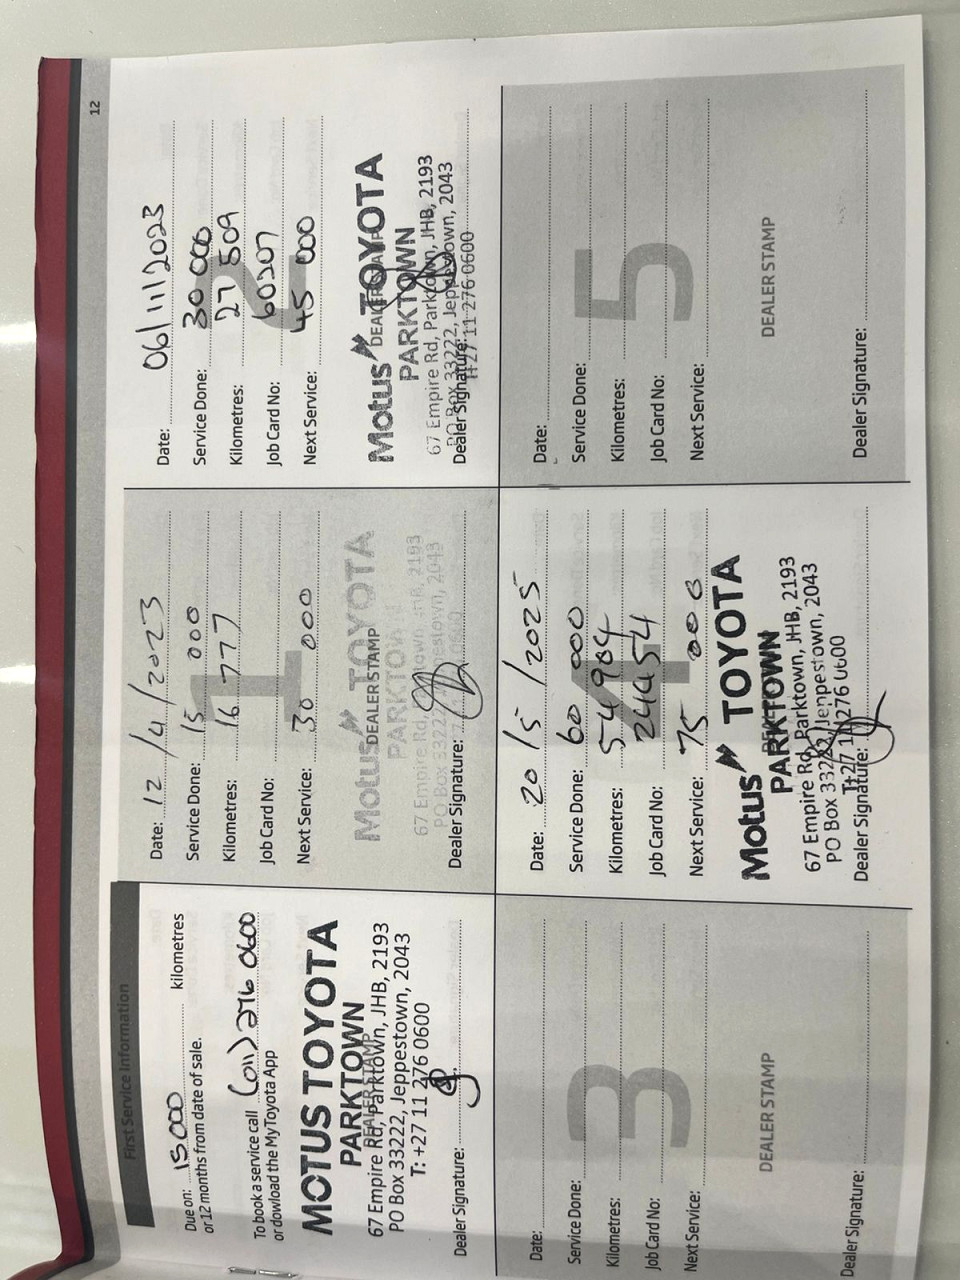 12
First Service Information
Due on: 15000 kilometres
or 12 months from date of sale.
To book a service call (011) 276 0600
or dowload the MyToyota App
MOTUS TOYOTA
PARKTOWN
DEALER STAMP
67 Empire Rd, Parktown, JHB, 2193
PO Box 33222, Jeppestown, 2043
T: +27 11 276 0600
Dealer Signature:
1
Date: 12/4/2023
Service Done: 15 000
Kilometres: 16 777
Job Card No:
Next Service: 30 000
Motus TOYOTA
DEALER STAMP
PARKTOWN
67 Empire Rd, Parktown, JHB, 2193
PO Box 33222, Jeppestown, 2043
Dealer Signature:
2
Date: 06/11/2023
Service Done: 30 000
Kilometres: 27 509
Job Card No: 60207
Next Service: 45 000
Motus TOYOTA
DEALER STAMP
PARKTOWN
67 Empire Rd, Parktown, JHB, 2193
PO Box 33222, Jeppestown, 2043
T:+27 11 276 0600
Dealer Signature:
3
Date:
Service Done:
Kilometres:
Job Card No:
Next Service:
DEALER STAMP
Dealer Signature:
4
Date: 20/5/2025
Service Done: 60 000
Kilometres: 54984
Job Card No: 24454
Next Service: 75 000
Motus TOYOTA
PARKTOWN
67 Empire Rd, Parktown, JHB, 2193
PO Box 33222, Jeppestown, 2043
T:+27 11 276 0600
Dealer Signature:
5
Date:
Service Done:
Kilometres:
Job Card No:
Next Service:
DEALER STAMP
Dealer Signature: